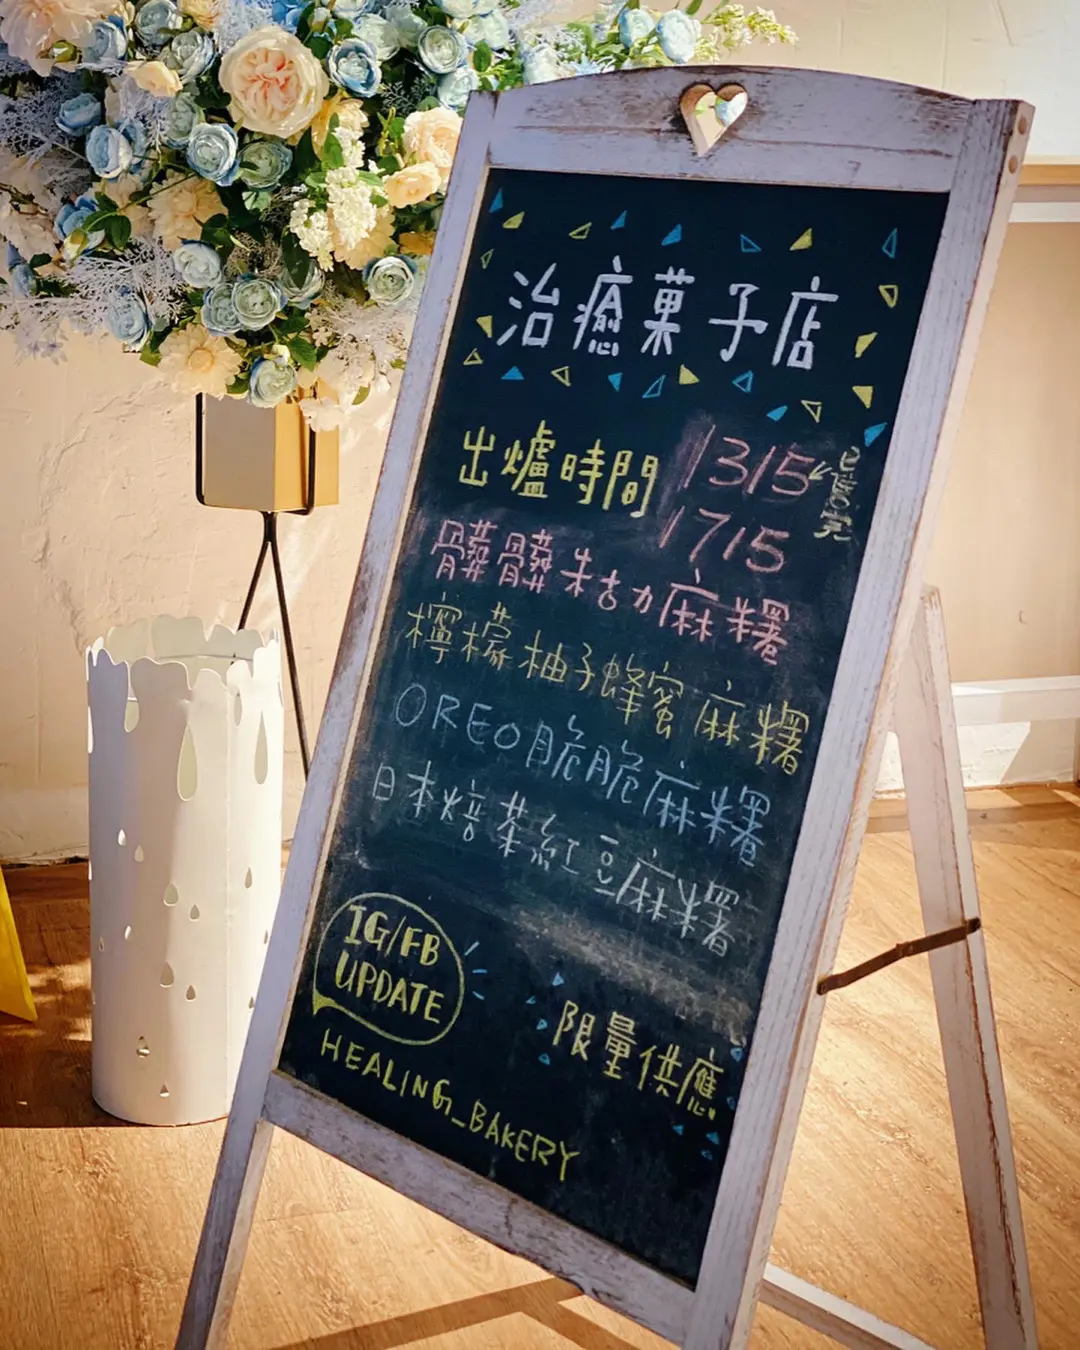 治癒菓子店
出爐時間 1315 已售完
1715
髒髒朱古力麻糬
檸檬柚子蜂蜜麻糬
OREO脆脆麻糬
日本焙茶紅豆麻糬
IG/FB
UPDATE
HEALING_BAKERY
限量供應